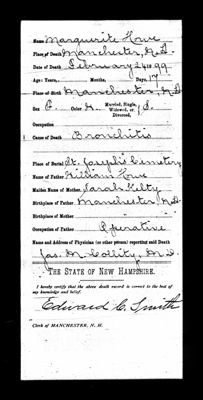 Name, Marguerite Howe
Place of Death Manchester, N.H.
Date of Death February 24 1899
Age: Years, Months, Days, 17
Place of Birth Manchester, N.H.
Sex F. Color W. Married, Single, Widowed, or Divorced, S.
Occupation
Cause of Death Bronchitis
Place of Burial St. Joseph's Cemetery
Name of Father William Howe
Maiden Name of Mother Sarah Kelty
Birthplace of Father Manchester, N.H.
Birthplace of Mother " "
Occupation of Father Operative
Name and Address of Physician (or other person) reporting said Death
Jas. M. Collity, M.D.
THE STATE OF NEW HAMPSHIRE.
I hereby certify that the above death record is correct to the best of my knowledge and belief.
Edward C. Smith
Clerk of MANCHESTER, N. H.